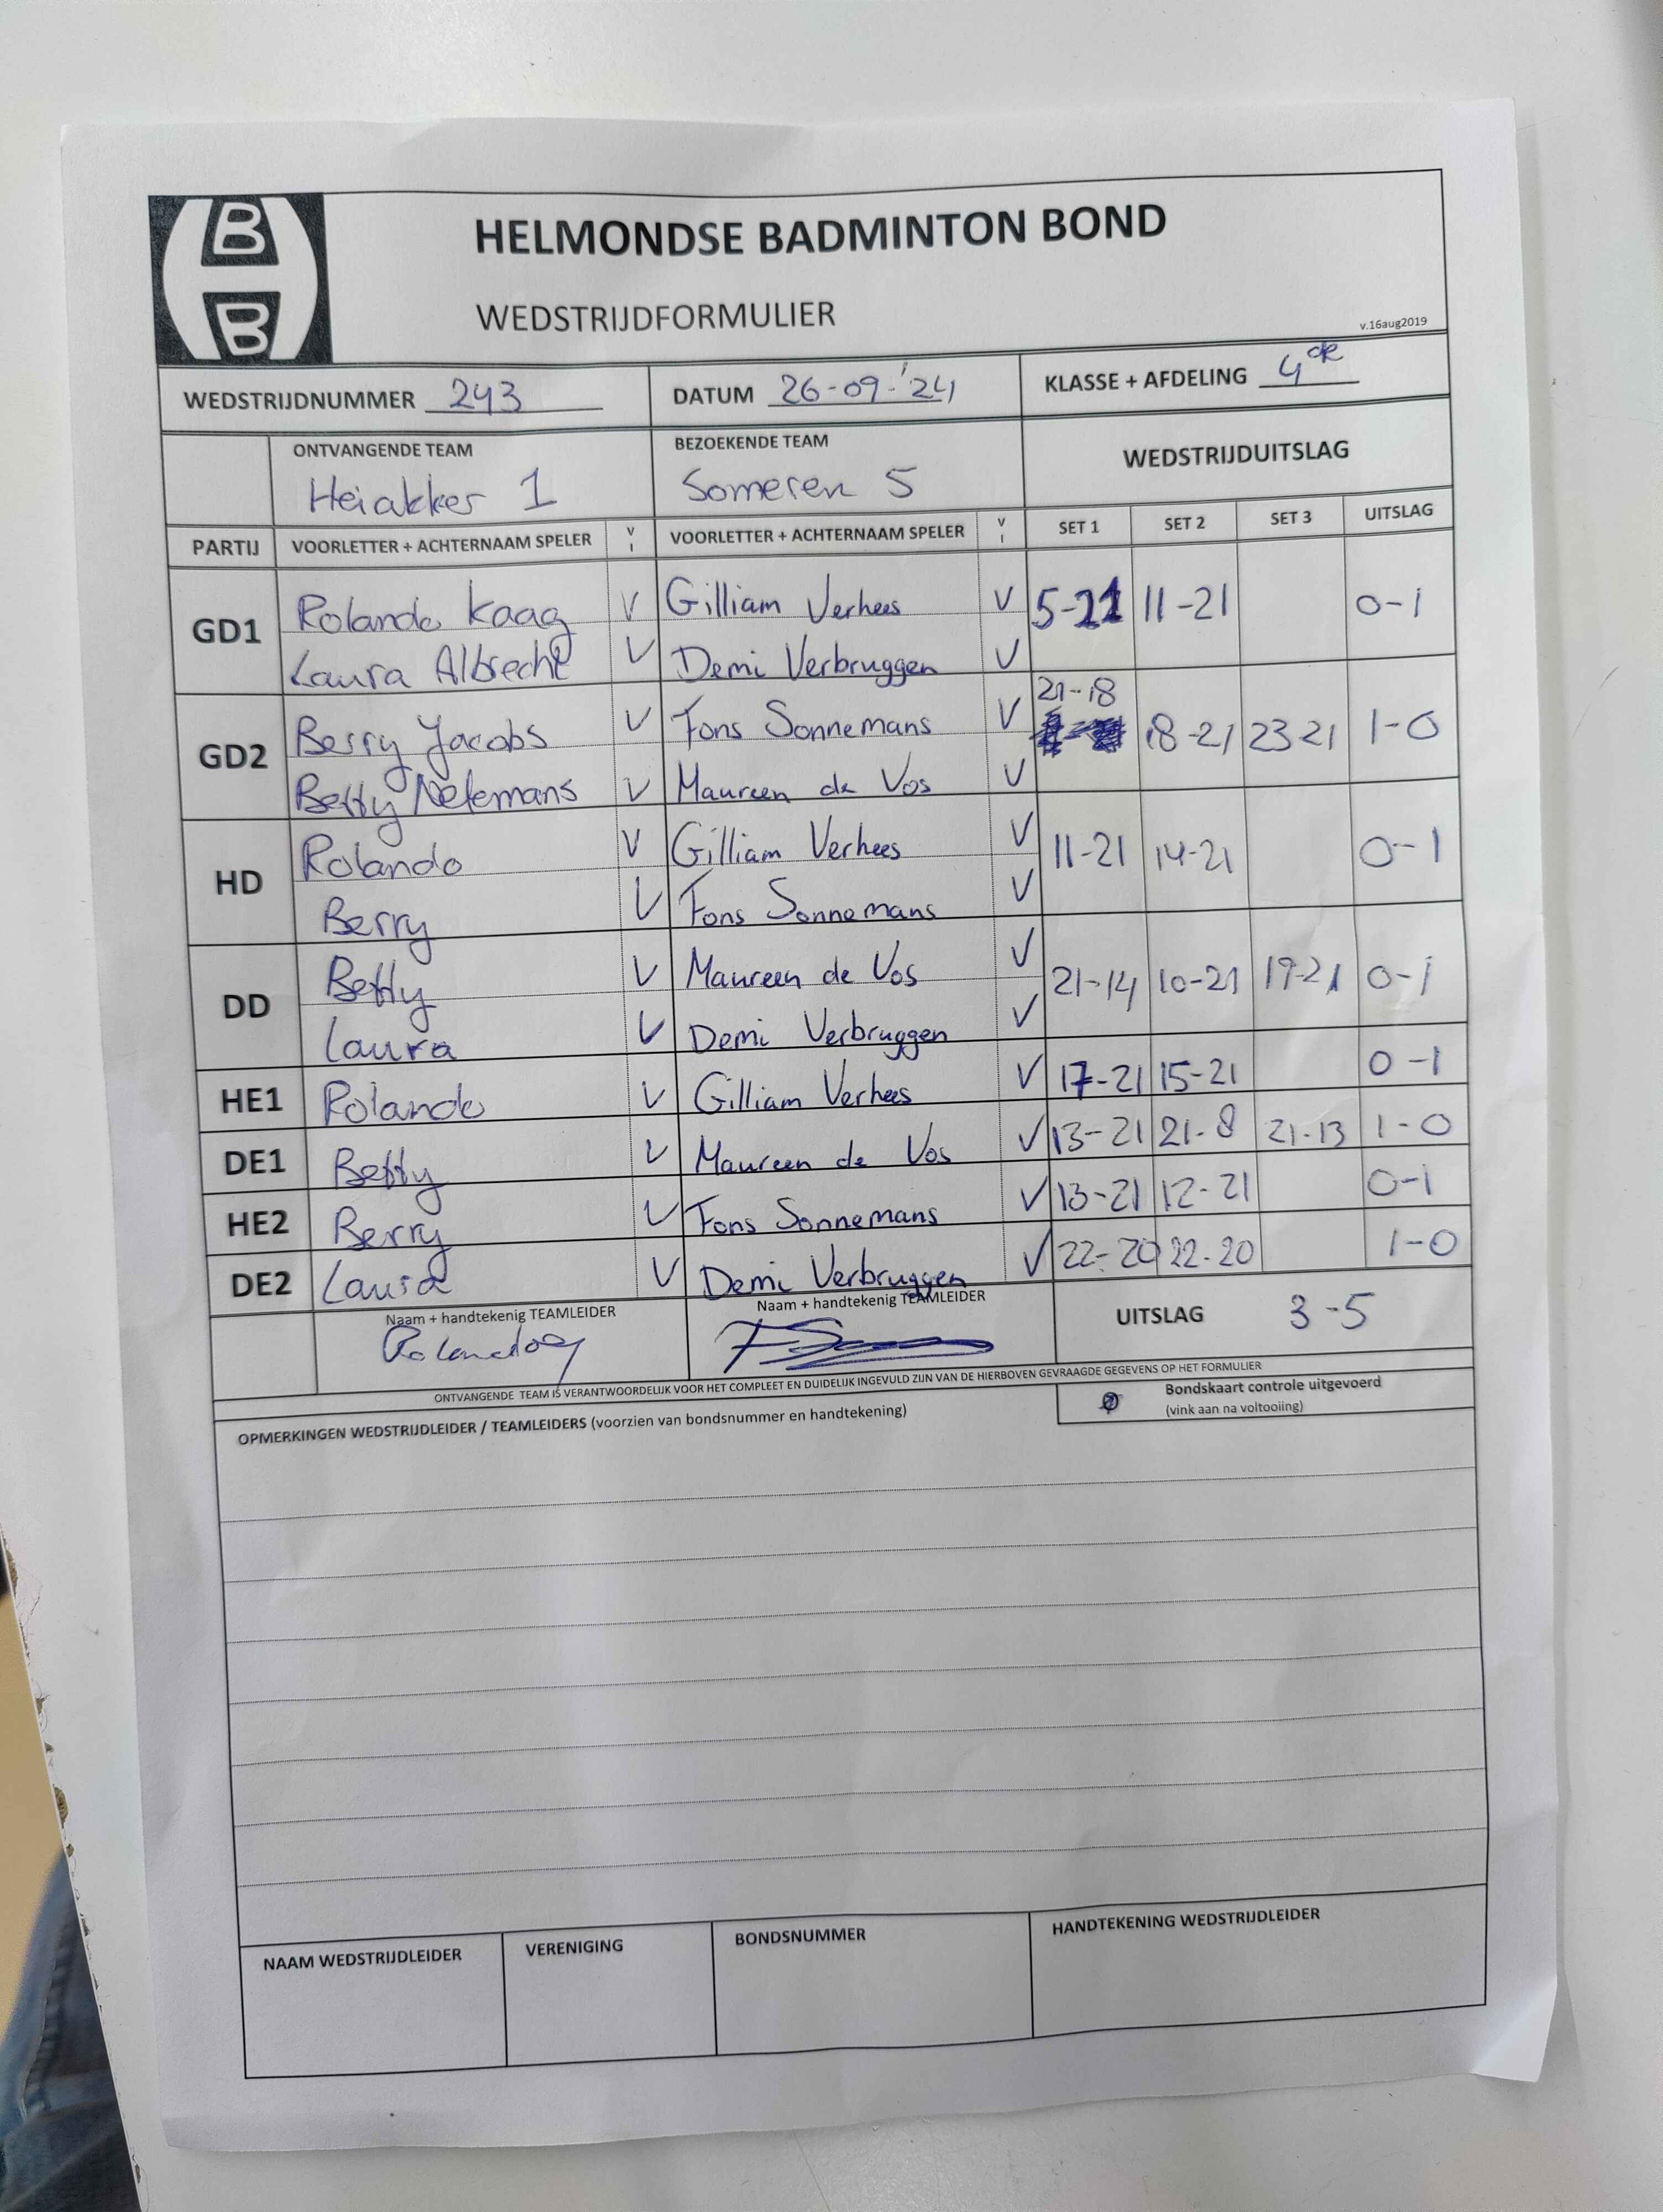 B
B
HELMONDSE BADMINTON BOND
WEDSTRIJDFORMULIER
v.16aug2019
WEDSTRIJDNUMMER 243 DATUM 26-09-'24 KLASSE + AFDELING 4de
ONTVANGENDE TEAM BEZOEKENDE TEAM WEDSTRIJDUITSLAG
Heiakker 1 Someren 5
PARTIJ VOORLETTER + ACHTERNAAM SPELER V I VOORLETTER + ACHTERNAAM SPELER V I SET 1 SET 2 SET 3 UITSLAG
GD1 Rolando Kaag V Gilliam Verhees V 5-21 11-21 0-1
Laura Albrecht V Demi Verbruggen V
GD2 Berry Jacobs V Fons Sonnemans V 21-18 18-21 23-21 1-0
Betty Nelemans V Maureen de Vos V
HD Rolando V Gilliam Verhees V 11-21 14-21 0-1
Berry V Fons Sonnemans V
DD Betty V Maureen de Vos V 21-14 10-21 19-21 0-1
Laura V Demi Verbruggen V
HE1 Rolando V Gilliam Verhees V 17-21 15-21 0-1
DE1 Betty V Maureen de Vos V 13-21 21-8 21-13 1-0
HE2 Berry V Fons Sonnemans V 13-21 12-21 0-1
DE2 Laura V Demi Verbruggen V 22-20 22-20 1-0
Naam + handtekenig TEAMLEIDER Naam + handtekenig TEAMLEIDER UITSLAG 3-5
ONTVANGENDE TEAM IS VERANTWOORDELIJK VOOR HET COMPLEET EN DUIDELIJK INGEVULD ZIJN VAN DE HIERBOVEN GEVRAAGDE GEGEVENS OP HET FORMULIER
Bondskaart controle uitgevoerd
(vink aan na voltooiing)
OPMERKINGEN WEDSTRIJDLEIDER / TEAMLEIDERS (voorzien van bondsnummer en handtekening)
NAAM WEDSTRIJDLEIDER VERENIGING BONDSNUMMER HANDTEKENING WEDSTRIJDLEIDER